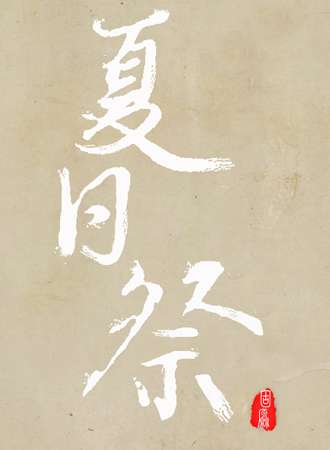 夏日祭